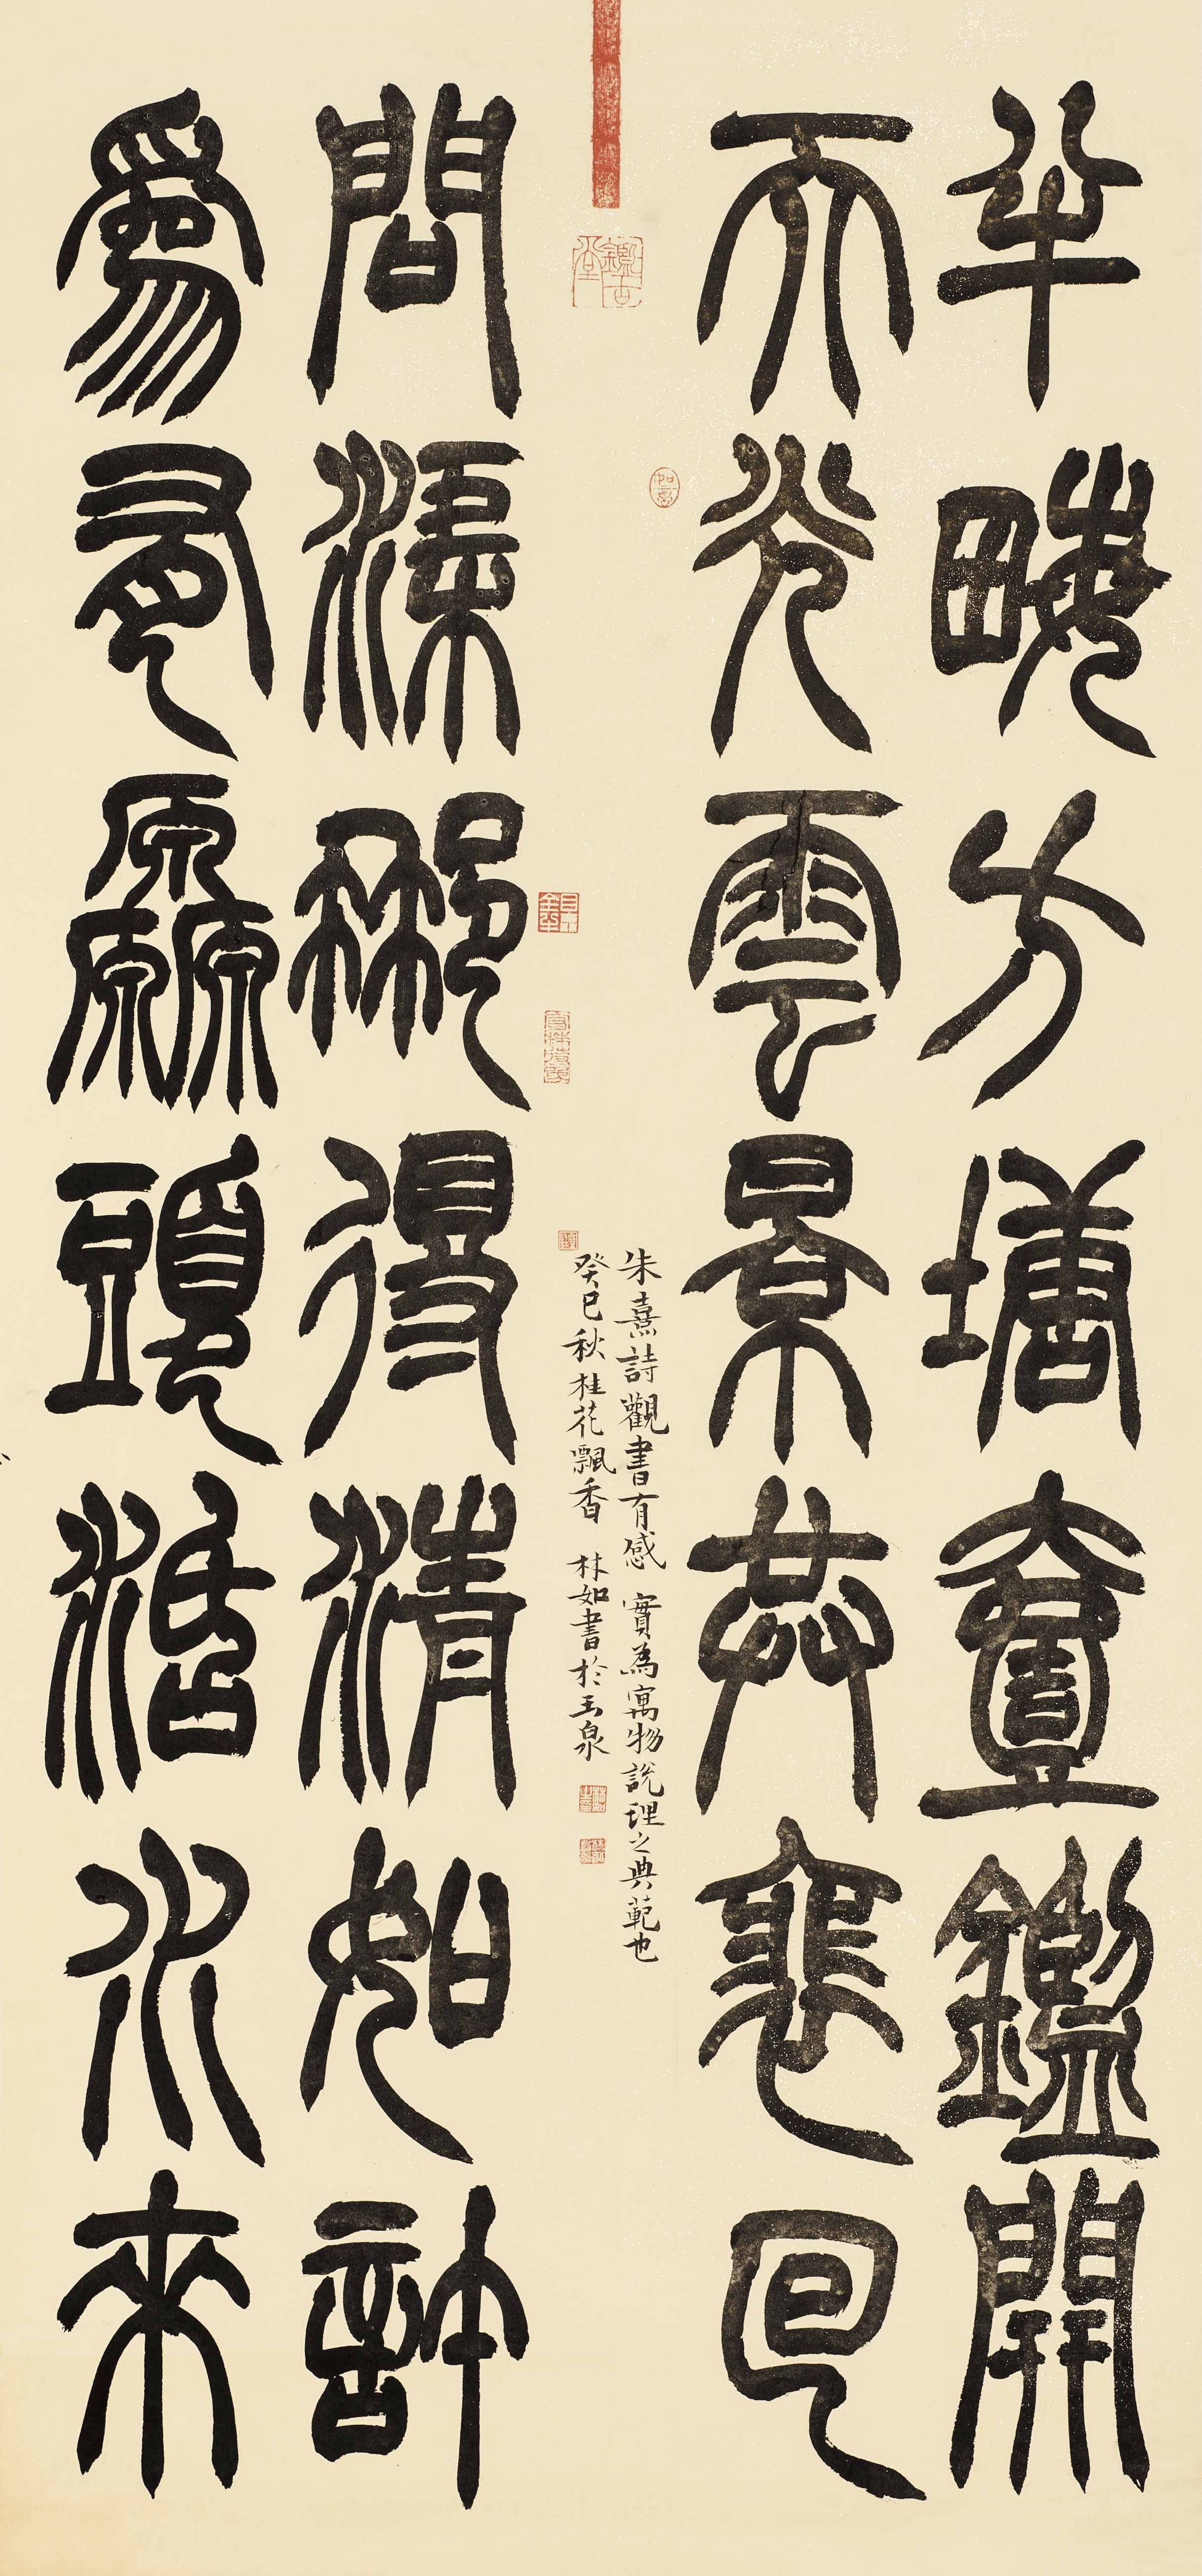 半畮方塘壹鑑開
天光雲景共裵回
問渠那得清如許
爲有厵頭活水來
朱熹詩觀書有感 實為寓物說理之典範也
癸巳秋桂花飄香 林如書於玉泉
鑑古堂